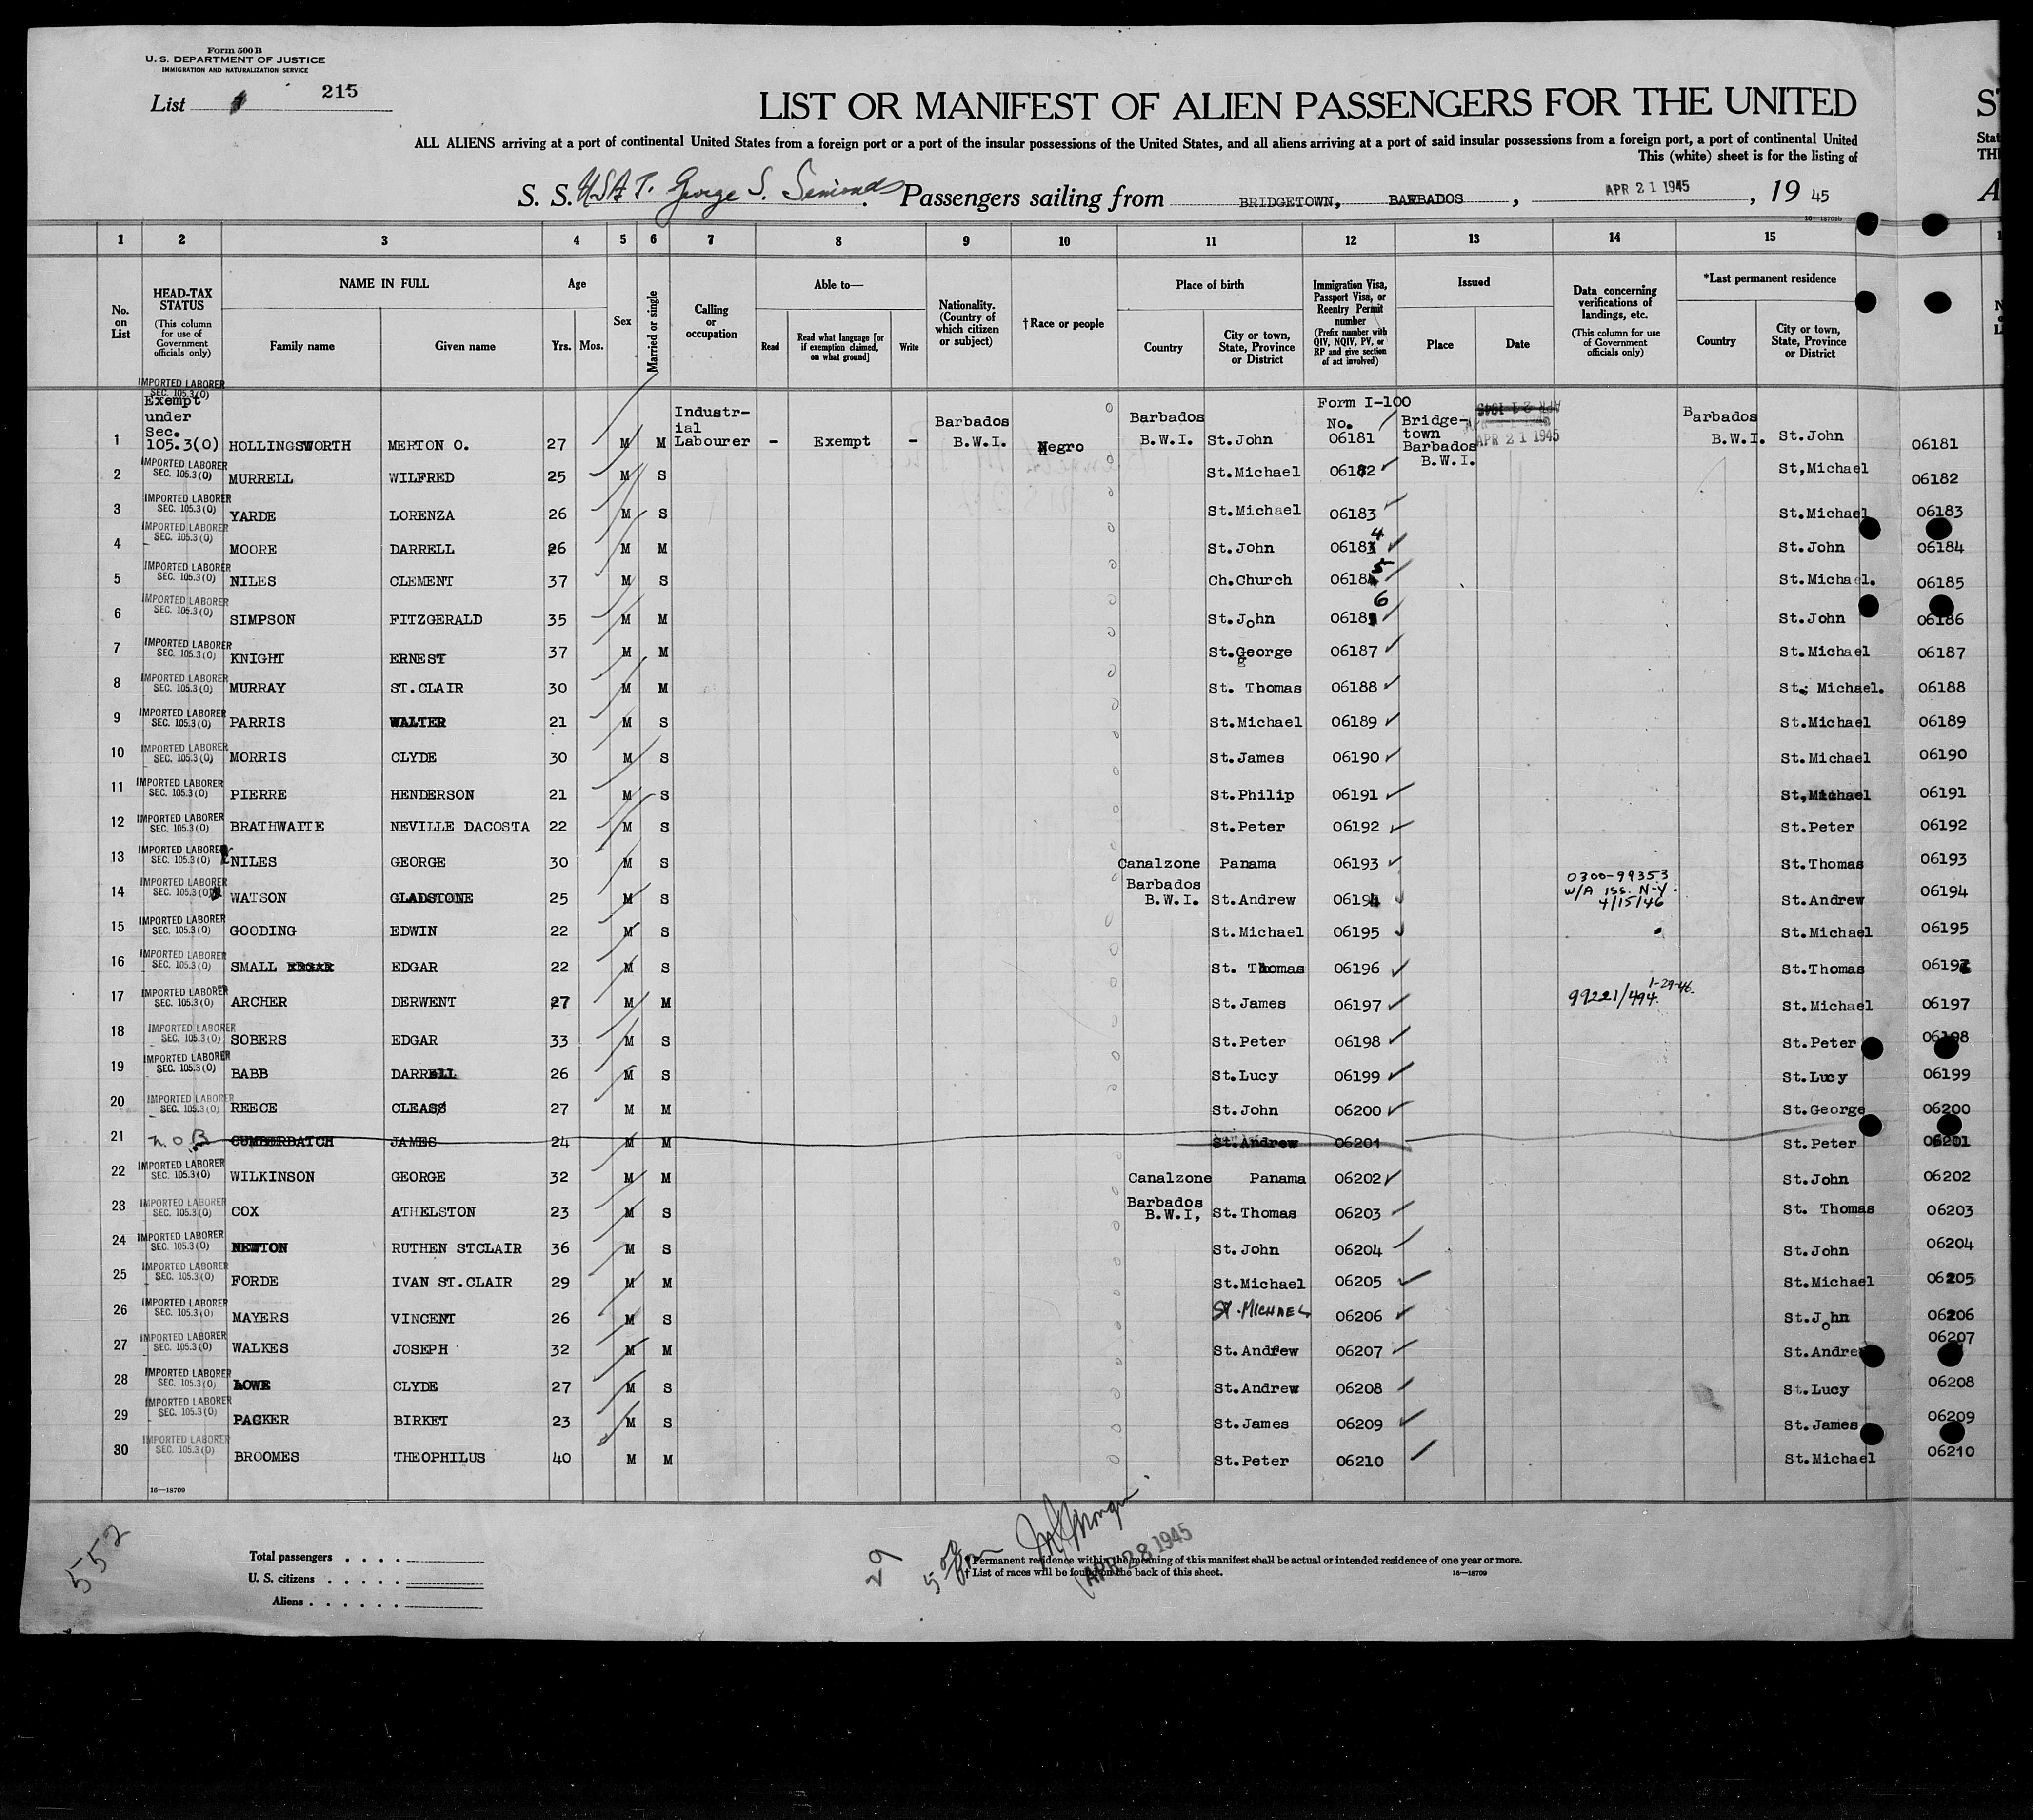 Form 500 B
U. S. DEPARTMENT OF JUSTICE
IMMIGRATION AND NATURALIZATION SERVICE
List 215
LIST OR MANIFEST OF ALIEN PASSENGERS FOR THE UNITED
ALL ALIENS arriving at a port of continental United States from a foreign port or a port of the insular possessions of the United States, and all aliens arriving at a port of said insular possessions from a foreign port, a port of continental United
This (white) sheet is for the listing of
S. S. USAT. George S. Simonds. Passengers sailing from BRIDGETOWN, BARBADOS, APR 21 1945, 19 45
16—18709b
1 2 3 4 5 6 7 8 9 10 11 12 13 14 15
No. on List
HEAD-TAX STATUS (This column for use of Government officials only)
NAME IN FULL Family name Given name
Age Yrs. Mos.
Sex
Married or single
Calling or occupation
Able to— Read Read what language [or if exemption claimed, on what ground] Write
Nationality. (Country of which citizen or subject)
†Race or people
Place of birth Country City or town, State, Province or District
Immigration Visa, Passport Visa, or Reentry Permit number (Prefix number with QIV, NQIV, PV, or RP and give section of act involved)
Issued Place Date
Data concerning verifications of landings, etc. (This column for use of Government officials only)
*Last permanent residence Country City or town, State, Province or District
IMPORTED LABORER SEC. 105.3(O)
Exempt under Sec.
1 105.3(O) HOLLINGSWORTH MERTON O. 27 M M Industrial Labourer - Exempt - Barbados B.W.I. Negro Barbados B.W.I. St.John Form I-100 No. 06181 Bridgetown Barbados B.W.I. APR 21 1945 Barbados B.W.I. St.John 06181
2 IMPORTED LABORER SEC. 105.3(O) MURRELL WILFRED 25 M S St.Michael 06182 St,Michael 06182
3 IMPORTED LABORER SEC. 105.3(O) YARDE LORENZA 26 M S St.Michael 06183 St.Michael 06183
4 IMPORTED LABORER SEC. 105.3(O) MOORE DARRELL 26 M M St.John 06184 St.John 06184
5 IMPORTED LABORER SEC. 105.3(O) NILES CLEMENT 37 M S Ch.Church 06185 St.Michael. 06185
6 IMPORTED LABORER SEC. 105.3(O) SIMPSON FITZGERALD 35 M M St.John 06186 St.John 06186
7 IMPORTED LABORER SEC. 105.3(O) KNIGHT ERNEST 37 M M St.George 06187 St.Michael 06187
8 IMPORTED LABORER SEC. 105.3(O) MURRAY ST.CLAIR 30 M M St. Thomas 06188 St. Michael. 06188
9 IMPORTED LABORER SEC. 105.3(O) PARRIS WALTER 21 M S St.Michael 06189 St.Michael 06189
10 IMPORTED LABORER SEC. 105.3(O) MORRIS CLYDE 30 M S St.James 06190 St.Michael 06190
11 IMPORTED LABORER SEC. 105.3(O) PIERRE HENDERSON 21 M S St.Philip 06191 St,Michael 06191
12 IMPORTED LABORER SEC. 105.3(O) BRATHWAITE NEVILLE DACOSTA 22 M S St.Peter 06192 St.Peter 06192
13 IMPORTED LABORER SEC. 105.3(O) NILES GEORGE 30 M S Canalzone Panama 06193 St.Thomas 06193
14 IMPORTED LABORER SEC. 105.3(O) WATSON GLADSTONE 25 M S Barbados B.W.I. St.Andrew 06194 0300-99353 W/A Iss. N-Y. 4/15/46 St.Andrew 06194
15 IMPORTED LABORER SEC. 105.3(O) GOODING EDWIN 22 M S St.Michael 06195 St.Michael 06195
16 IMPORTED LABORER SEC. 105.3(O) SMALL EDGAR 22 M S St. Thomas 06196 St.Thomas 06196
17 IMPORTED LABORER SEC. 105.3(O) ARCHER DERWENT 27 M M St.James 06197 99221/494 1-29-46. St.Michael 06197
18 IMPORTED LABORER SEC. 105.3(O) SOBERS EDGAR 33 M S St.Peter 06198 St.Peter 06198
19 IMPORTED LABORER SEC. 105.3(O) BABB DARRELL 26 M S St.Lucy 06199 St.Lucy 06199
20 IMPORTED LABORER SEC. 105.3(O) REECE CLEASS 27 M M St.John 06200 St.George 06200
21 N.O.B CUMBERBATCH JAMES 24 M M St.Andrew 06201 St.Peter 06201
22 IMPORTED LABORER SEC. 105.3(O) WILKINSON GEORGE 32 M M Canalzone Panama 06202 St.John 06202
23 IMPORTED LABORER SEC. 105.3(O) COX ATHELSTON 23 M S Barbados B.W.I, St.Thomas 06203 St. Thomas 06203
24 IMPORTED LABORER SEC. 105.3(O) NEWTON RUTHEN STCLAIR 36 M S St.John 06204 St.John 06204
25 IMPORTED LABORER SEC. 105.3(O) FORDE IVAN ST.CLAIR 29 M M St.Michael 06205 St.Michael 06205
26 IMPORTED LABORER SEC. 105.3(O) MAYERS VINCENT 26 M S ST.MICHAEL 06206 St.John 06206
27 IMPORTED LABORER SEC. 105.3(O) WALKES JOSEPH 32 M M St.Andrew 06207 St.Andrew 06207
28 IMPORTED LABORER SEC. 105.3(O) LOWE CLYDE 27 M S St.Andrew 06208 St.Lucy 06208
29 IMPORTED LABORER SEC. 105.3(O) PACKER BIRKET 23 M S St.James 06209 St.James 06209
30 IMPORTED LABORER SEC. 105.3(O) BROOMES THEOPHILUS 40 M M St.Peter 06210 St.Michael 06210
16—18709
552
Total passengers . . . .
U. S. citizens . . . . .
Aliens . . . . . .
29
APR 28 1945
*Permanent residence within the meaning of this manifest shall be actual or intended residence of one year or more.
† List of races will be found on the back of this sheet.
16—18709